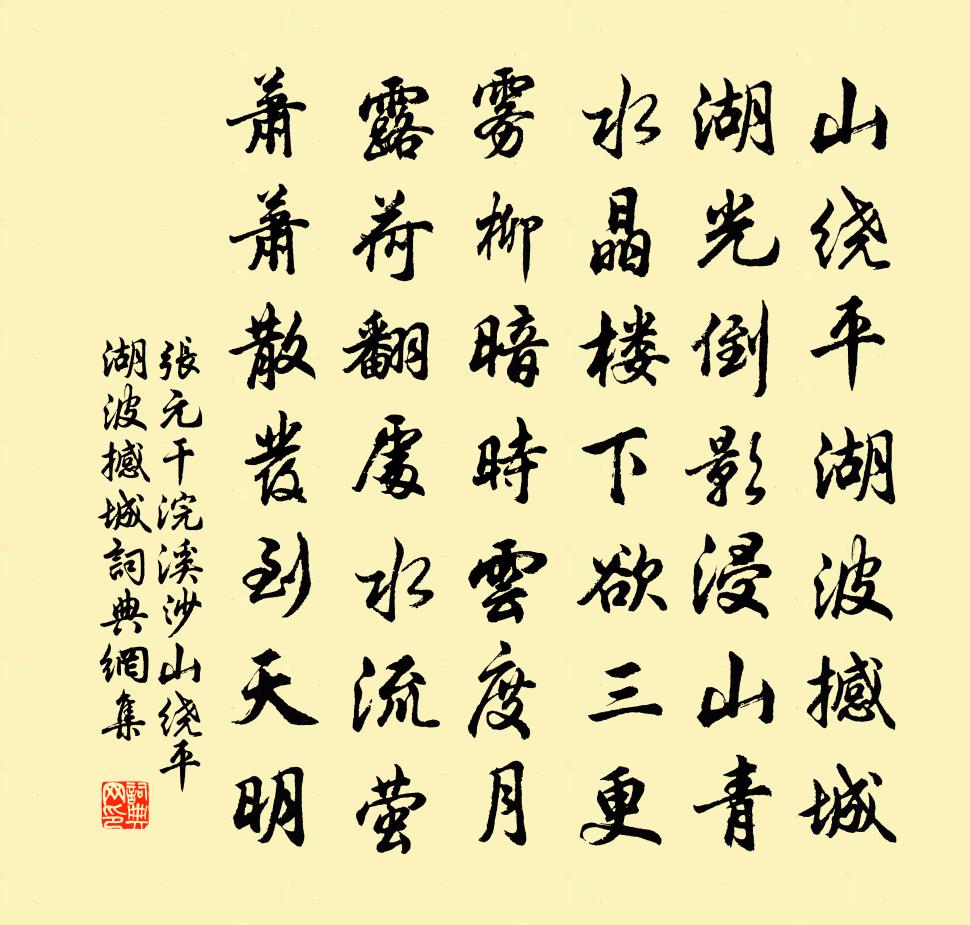 山绕平湖波撼城
湖光倒影浸山青
水晶楼下欲三更
雾柳暗時雲度月
露荷翻處水流萤
萧萧散發到天明
張元干浣溪沙山绕平
湖波撼城詞典網集
詞典网印